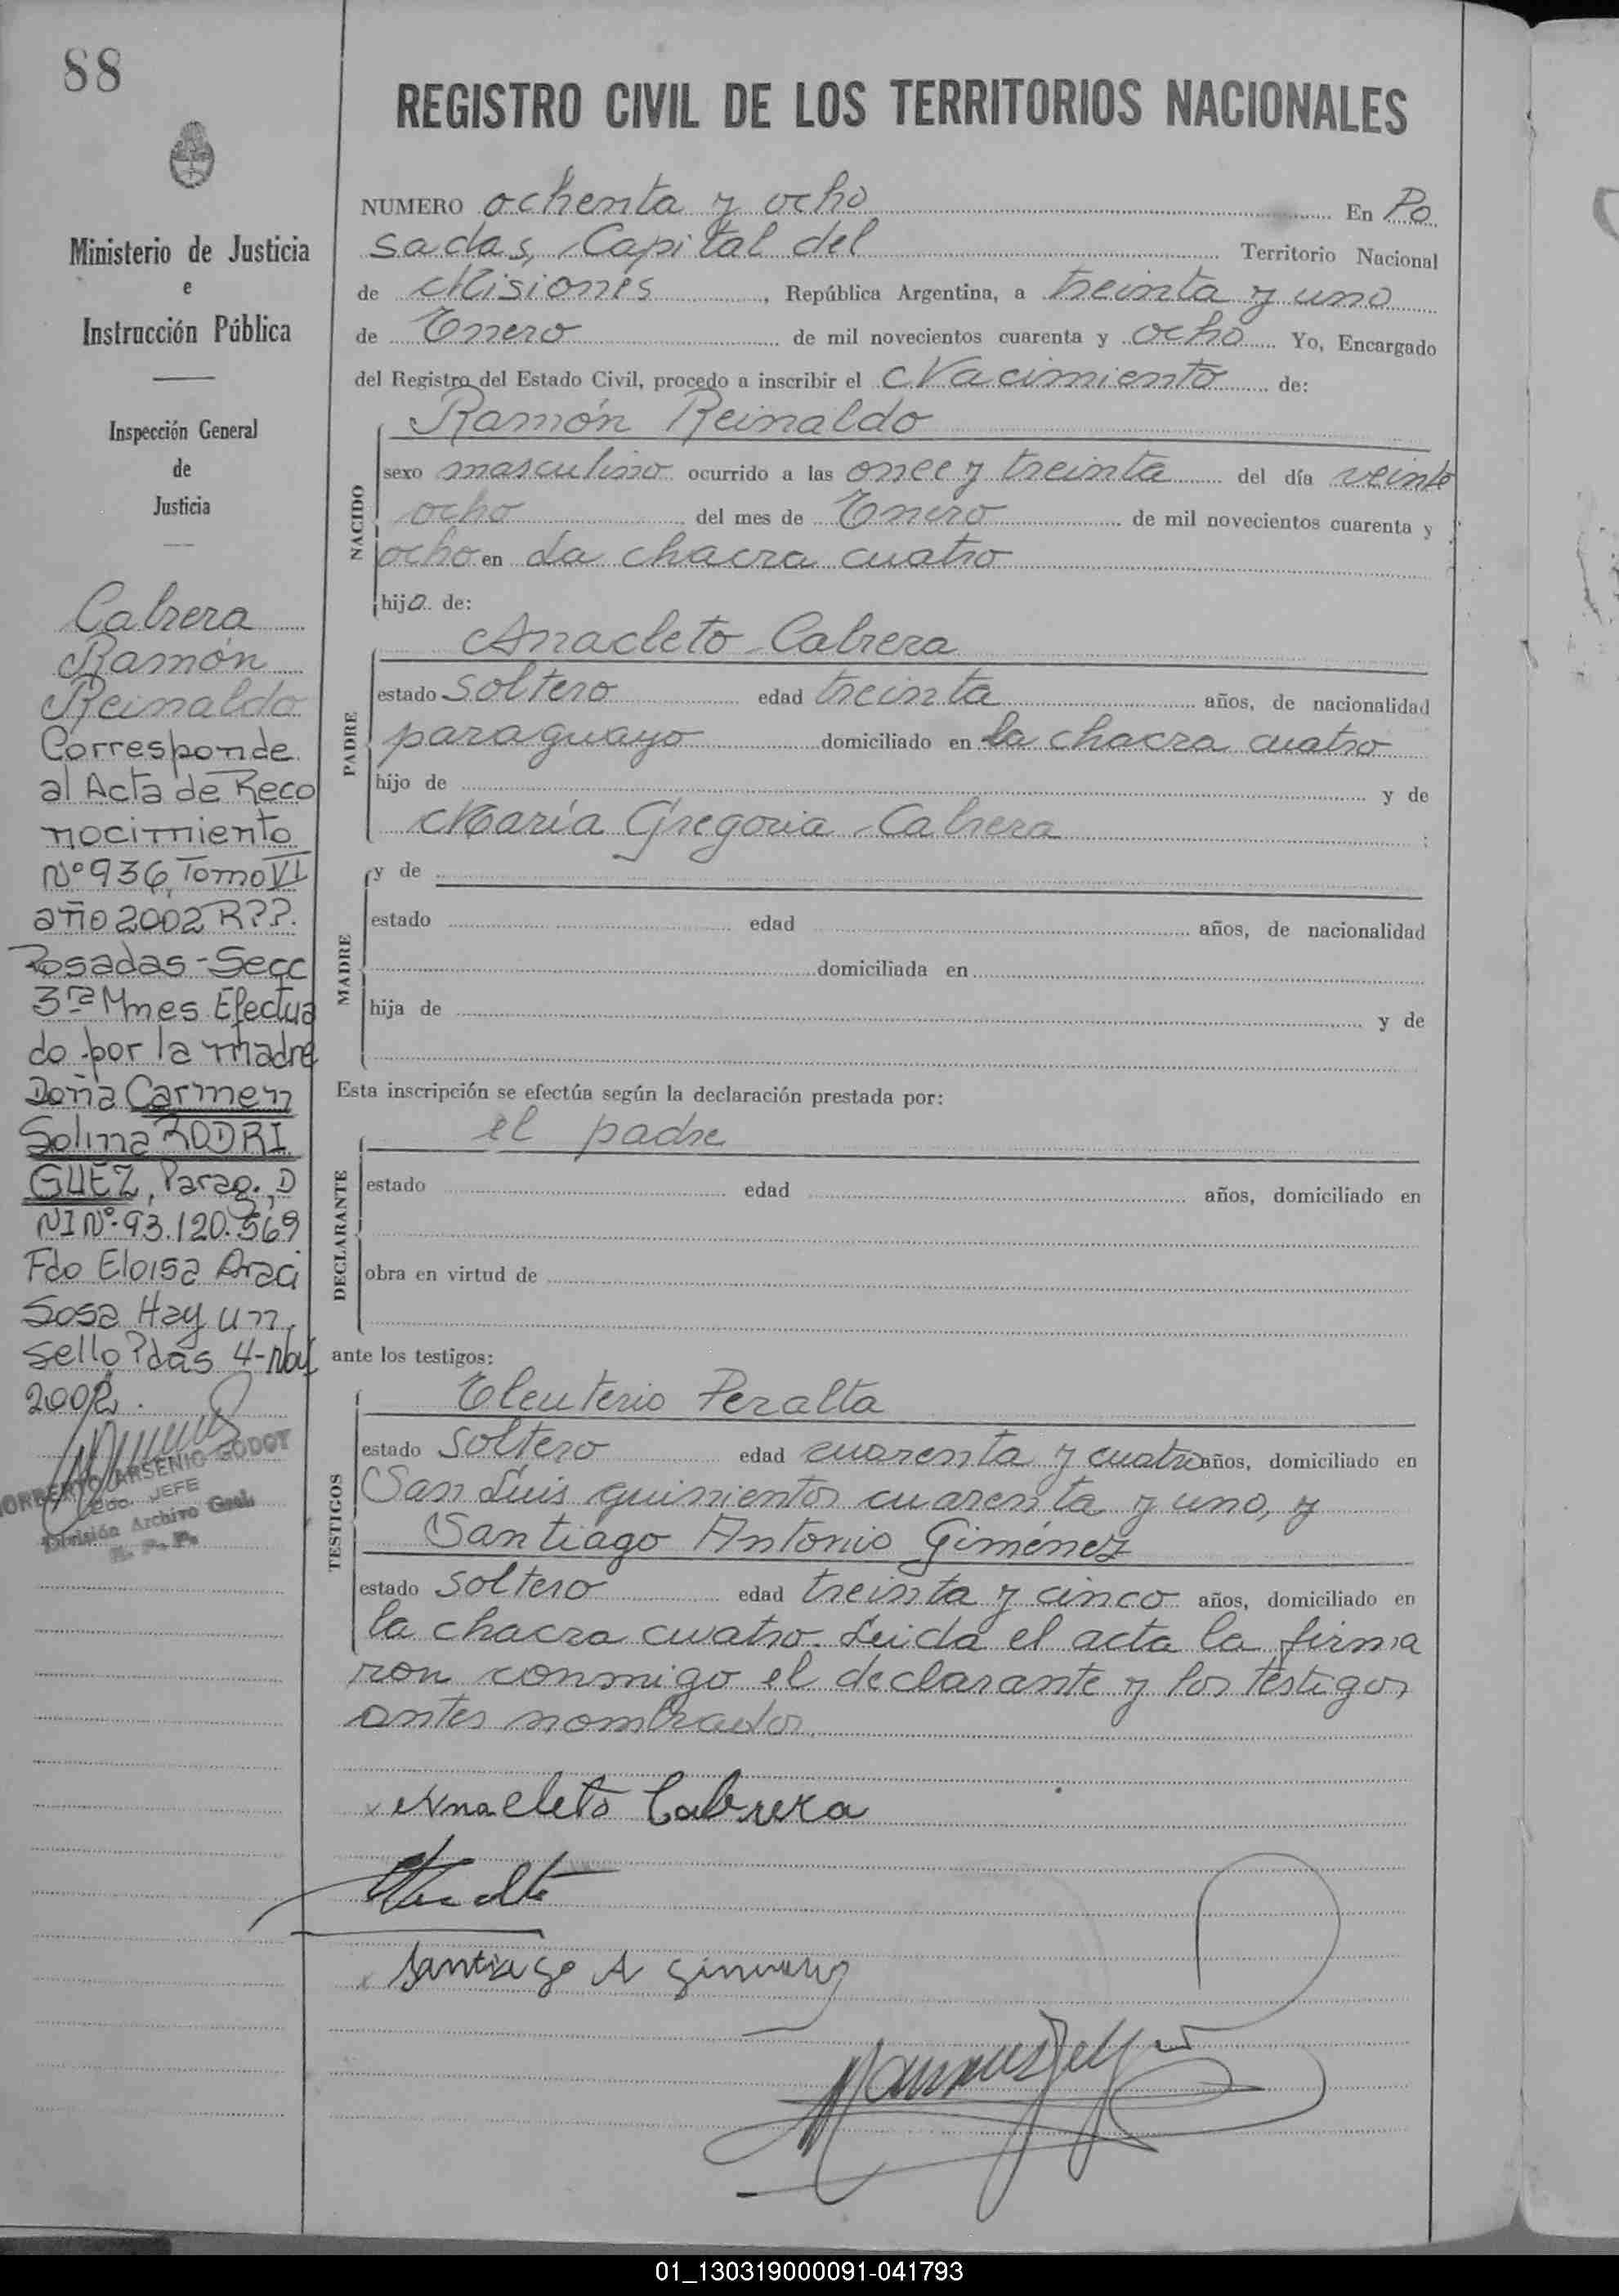 88
REGISTRO CIVIL DE LOS TERRITORIOS NACIONALES
Ministerio de Justicia
e
Instrucción Pública
Inspección General
de
Justicia
Cabrera
Ramón
Reinaldo
Corresponde
al Acta de Reco
nocimiento
Nº 936, Tomo VI
año 2002 R??.
Posadas - Secc
3ra Mnes Efectua
do por la madre
Doña Carmen
Solina RODRI
GUEZ, Parag. D
NI Nº 93.120.569
Fdo Eloisa Araci
Sosa Hay un
sello Pdas 4-nov
2002.
NORBERTO ARSENIO GODOY
2do. JEFE
División Archivo Gral.
R. P. P.
NUMERO ochenta y ocho En Po
sadas, Capital del Territorio Nacional
de Misiones, República Argentina, a treinta y uno
de Enero de mil novecientos cuarenta y ocho Yo, Encargado
del Registro del Estado Civil, procedo a inscribir el Nacimiento de:
NACIDO
Ramón Reinaldo
sexo masculino ocurrido a las once y treinta del día veinte
ocho del mes de Enero de mil novecientos cuarenta y
ocho en La chacra cuatro
hijo de:
PADRE
Anacleto Cabrera
estado soltero edad treinta años, de nacionalidad
paraguayo domiciliado en la chacra cuatro
hijo de y de
María Gregoria Cabrera
MADRE
y de
estado edad años, de nacionalidad
domiciliada en
hija de y de
Esta inscripción se efectúa según la declaración prestada por:
DECLARANTE
el padre
estado edad años, domiciliado en
obra en virtud de
ante los testigos:
TESTIGOS
Eleuterio Peralta
estado soltero edad cuarenta y cuatro años, domiciliado en
San Luis quinientos cuarenta y uno, y
Santiago Antonio Giménez
estado soltero edad treinta y cinco años, domiciliado en
la chacra cuatro. Leida el acta la firma
ron conmigo el declarante y los testigos
antes nombrados.
x Anacleto Cabrera
x Santiago A Gimenez
01_130319000091-041793